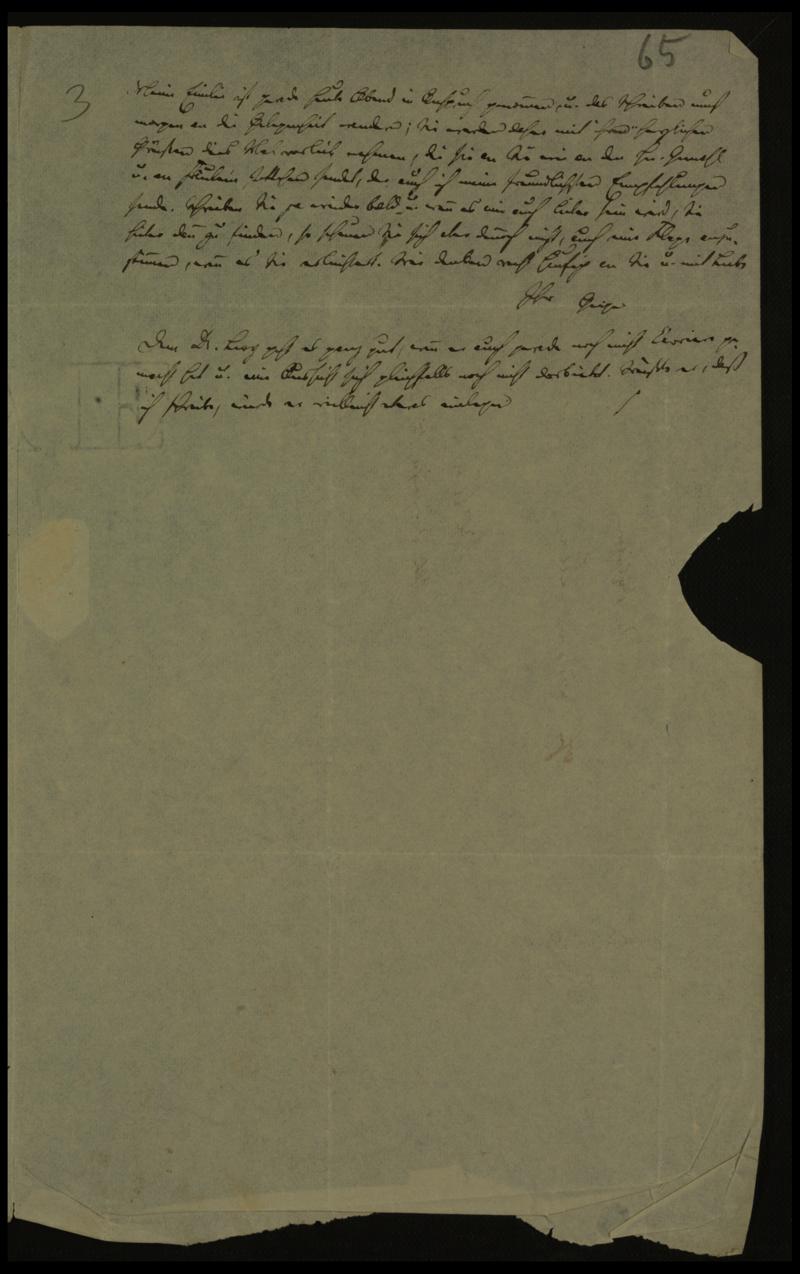 65
3
Meine Emilie ist gerade heute Abend in Anspruch genommen u. das Schreiben muß
morgen an die Gelegenheit wandern; Sie werden daher mit herzlichen
Grüßen dies Mal vorlieb nehmen, die sie an Sie wie an den Hn. Gemahl
u. an Fräulein sendet, der auch ich meine freundlichsten Empfehlungen
sende. Schreiben Sie ja wieder bald u. wenn es mir auch lieber sein wird, Sie
heiter zu finden, so scheuen Sie sich aber dennoch nicht, auch eine Klage anzu-
stimmen, wenn es Sie erleichtert. Wir denken recht häufig an Sie u. mit Liebe
Ihr Geiger
Dem Dr. geht es ganz gut, wenn er auch gerade noch nicht Carriere ge-
macht hat u. eine Aussicht sich gleichfalls noch nicht darbietet. Wüßte er, daß
ich schreibe, würde er vielleicht etwas einlegen